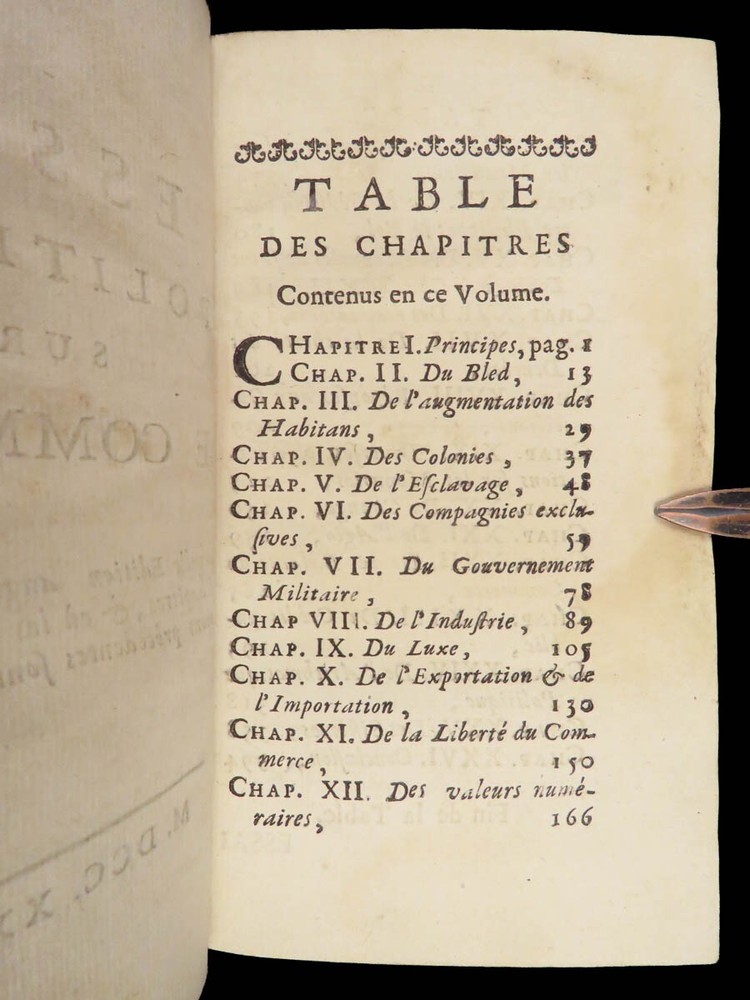 TABLE
DES CHAPITRES
Contenus en ce Volume.
CHAPITRE I. Principes, pag. 1
CHAP. II. Du Bled, 13
CHAP. III. De l'augmentation des
Habitans, 29
CHAP. IV. Des Colonies, 37
CHAP. V. De l'Eſclavage, 48
CHAP. VI. Des Compagnies exclu-
ſives, 59
CHAP. VII. Du Gouvernement
Militaire, 78
CHAP VIII. De l'Induſtrie, 89
CHAP. IX. Du Luxe, 105
CHAP. X. De l'Exportation & de
l'Importation, 130
CHAP. XI. De la Liberté du Com-
merce, 150
CHAP. XII. Des valeurs numé-
raires, 166